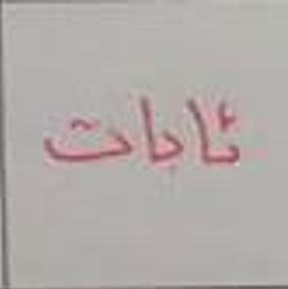 ئابات